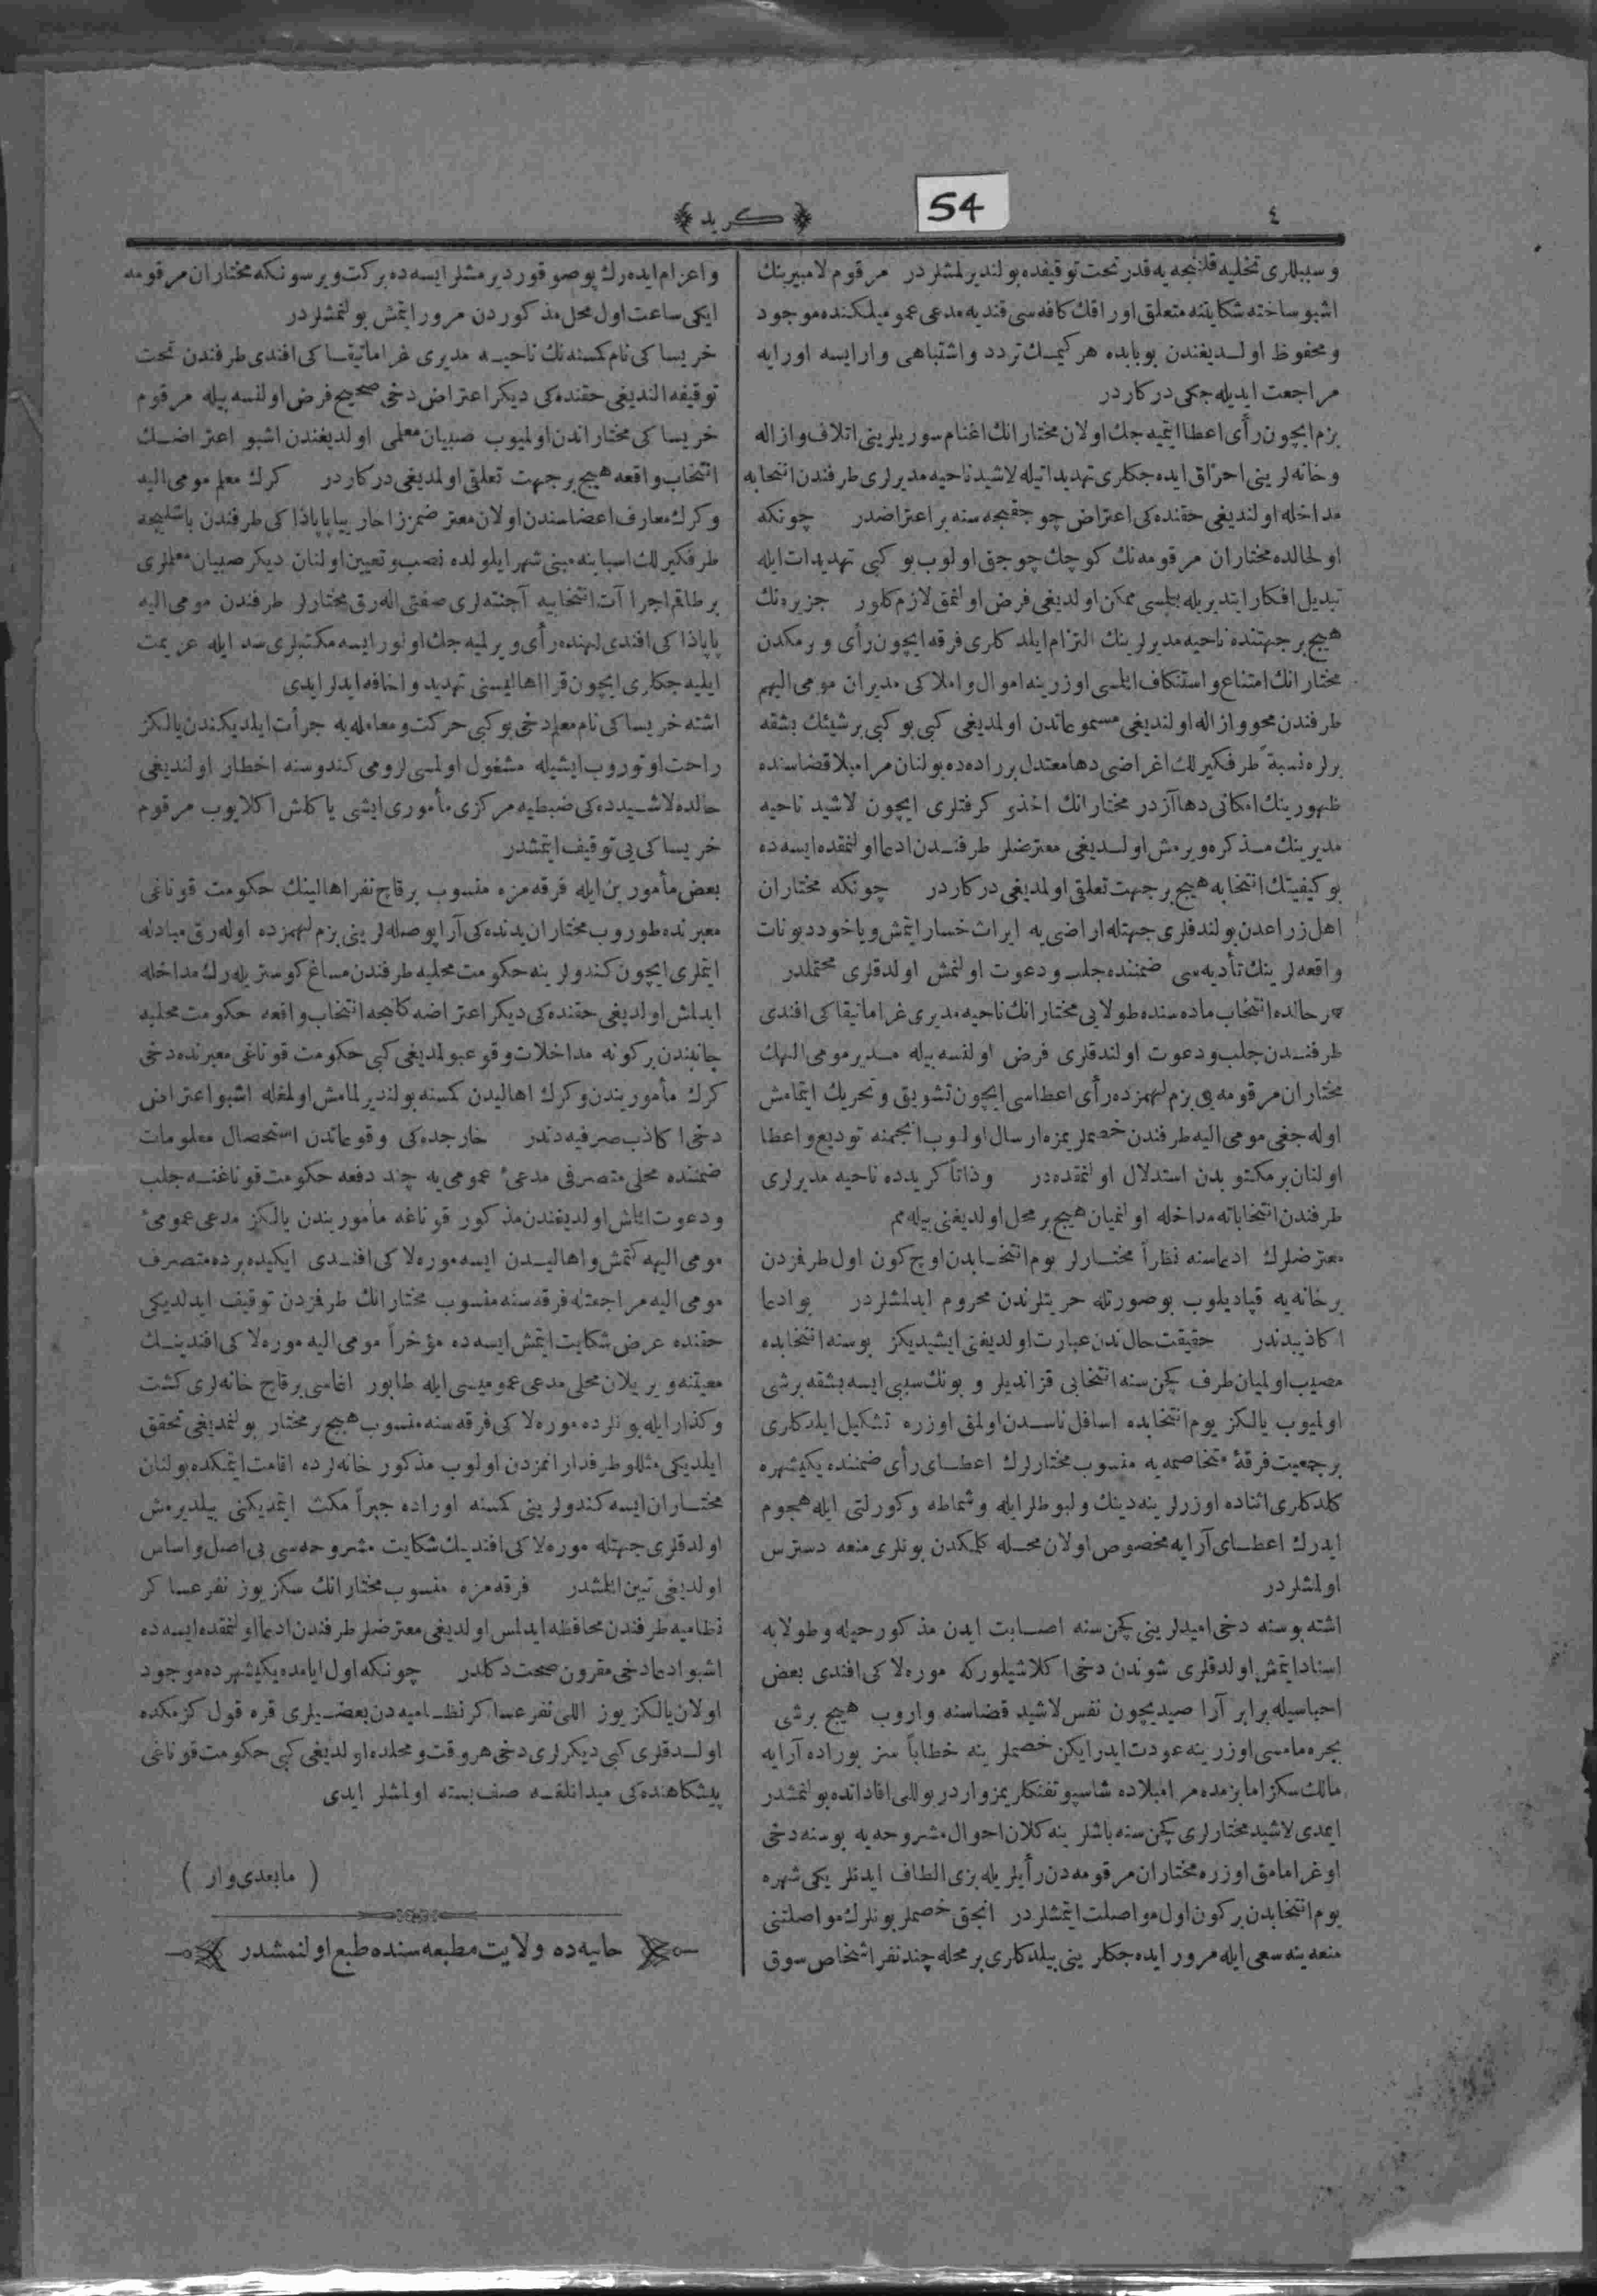 ٤
﴿ كريد ﴾
54
و سبيللرى تخليه قلنجه يه قدر تحت توقيفده بولنديرلمشلردر مرقوم لامبيرينك
اشبو ساخته شكايتنه متعلق اوراقك كافه سى قنديه مدعى عموميلكنده موجود
و محفوظ اولديغندن بوبابده هر كيمك تردد و اشتباهى وار ايسه اورايه
مراجعت ايديله جكى دركاردر
بزم ايچون رأى اعطا ايتميه جك اولان مختارانك اغنام سوريلرينى اتلاف و ازاله
و خانه لرينى احراق ايده جكلرى تهديداتيله لاشيد ناحيه مديرلرى طرفندن انتخابه
مداخله اولنديغى حقنده كى اعتراض چوجقجه سنه بر اعتراضدر چونكه
اولحالده مختاران مرقومه نك كوچك چوجق اولوب بو كبى تهديدات ايله
تبديل افكار ايتديريله بيلمسى ممكن اولديغى فرض اولنمق لازم كلور جزيره نك
هيچ بر جهتنده ناحيه مديرلرينك التزام ايلدكلرى فرقه ايچون رأى ويرمكدن
مختارانك امتناع و استنكاف ايلمسى اوزرينه اموال و املاكى مديران مومى اليهم
طرفندن محو و ازاله اولنديغى مسموعاتدن اولمديغى كبى بو كبى بر شيئك بشقه
يرلره نسبة طرفكيرلك اغراضى دها معتدل بر راده ده بولنان مرامبلا قضاسنده
ظهورينك امكانى دها آزدر مختارانك اخذ و كرفتلرى ايچون لاشيد ناحيه
مديرينك مذكره ويرمش اولديغى معترضلر طرفندن ادعا اولنمقده ايسه ده
بو كيفيتك انتخابه هيچ بر جهت تعلقى اولمديغى دركاردر چونكه مختاران
اهل زراعدن بولندقلرى جهتله اراضى يه ايراث خسار ايتمش و ياخود ديونات
واقعه لرينك تأديه سى ضمننده جلب و دعوت اولنمش اولدقلرى محتملدر
هر حالده انتخاب ماده سنده طولايى مختارانك ناحيه مديرى غراماتيقاكى افندى
طرفندن جلب و دعوت اولندقلرى فرض اولنسه بيله مدير مومى اليهك
مختاران مرقومه يى بزم لهمزده رأى اعطاسى ايچون تشويق و تحريك ايتمامش
اوله جغى مومى اليه طرفندن خصملريمزه ارسال اولوب انجمنه توديع و اعطا
اولنان بر مكتوبدن استدلال اولنمقده در و ذاتاً كريدده ناحيه مديرلرى
طرفندن انتخاباته مداخله اولنميان هيچ بر محل اولديغنى بيله مم
معترضلرك ادعاسنه نظراً مختارلر يوم انتخابدن اوچ كون اول طرفمزدن
بر خانه يه قپاديلوب بو صورتله حريتلرندن محروم ايدلمشلردر بو ادعا
اكاذيبدندر حقيقت حال ندن عبارت اولديغنى ايشيديكز بو سنه انتخابده
مصيب اولميان طرف كچن سنه انتخابى قزانديلر و بونك سببى ايسه بشقه بر شى
اولميوب يالكز يوم انتخابده اسافل ناسدن اولمق اوزره تشكيل ايلدكلرى
بر جمعيت فرقهٔ متخاصمه يه منسوب مختارلرك اعطاى رأى ضمننده يكيشهره
كلدكلرى اثناده اوزرلرينه دينك و لبوطلر ايله و شماطه و كورلتى ايله هجوم
ايدرك اعطاى آرايه مخصوص اولان محله كلمكدن بونلرى منعه دسترس
اولمشلردر
اشته بو سنه دخى اميدلرينى كچن سنه اصابت ايدن مذكور حيله و طولابه
اسناد ايتمش اولدقلرى شوندن دخى اكلاشيلوركه موره لاكى افندى بعض
احباسيله برابر آرا صيديچون نفس لاشيد قضاسنه واروب هيچ بر شى
بجره مامسى اوزرينه عودت ايدر ايكن خصملرينه خطاباً سز بوراده آرايه
مالك سكز اما بزمده مرامبلاده شاسپو تفنكلريمز واردر بوللى افاداتده بولنمشدر
ايمدى لاشيد مختارلرى كچن سنه باشلرينه كلان احوال مشروحه يه بو سنه دخى
اوغرامامق اوزره مختاران مرقومه دن رأيلريله بزى الطاف ايدنلر يكى شهره
يوم انتخابدن بر كون اول مواصلت ايتمشلردر انجق خصملر بونلرك مواصلتنى
منعه ينه سعى ايله مرور ايده جكلرينى بيلدكلرى بر محله چند نفر اشخاص سوق
و اعزام ايده رك پوصو قورديرمشلر ايسه ده بركت ويرسونكه مختاران مرقومه
ايكى ساعت اول محل مذكوردن مرور ايتمش بولنمشلردر
خريساكى نام كمسنه نك ناحيه مديرى غراماتيقاكى افندى طرفندن تحت
توقيفه النديغى حقنده كى ديكر اعتراض دخى صحيح فرض اولنسه بيله مرقوم
خريساكى مختاراندن اولميوب صبيان معلمى اولديغندن اشبو اعتراضك
انتخاب واقعه هيچ بر جهت تعلقى اولمديغى دركاردر كرك معلم مومى اليه
و كرك معارف اعضاسندن اولان معترضمز زاحاريا پاپاذاكى طرفندن باشليجه
طرفكيرلك اسبابنه مبنى شهر ايلولده نصب و تعيين اولنان ديكر صبيان معلملرى
بر طاقم اجراآت انتخابيه آجنته لرى صفتى اله رق مختارلر طرفندن مومى اليه
پاپاذاكى افندى لهنده رأى ويرلميه جك اولور ايسه مكتبلرى سد ايله عزيمت
ايليه جكلرى ايچون قرا اهاليسنى تهديد و اخافه ايدلر ايدى
اشته خريساكى نام معلم دخى بو كبى حركت و معامله يه جرأت ايلديكندن يالكز
راحت اوتوروب ايشيله مشغول اولمسى لزومى كندوسنه اخطار اولنديغى
حالده لاشيدده كى ضبطيه مركزى مأمورى ايشى ياكلش اكلايوب مرقوم
خريساكى يى توقيف ايتمشدر
بعض مأمورين ايله فرقه مزه منسوب بر قاچ نفر اهالينك حكومت قوناغى
معبرنده طوروب مختاران يدنده كى آرا پوصله لرينى بزم لهمزده اوله رق مبادله
ايتملرى ايچون كندولرينه حكومت محليه طرفندن مساغ كوستريله رك مداخله
ايدلمش اولديغى حقنده كى ديكر اعتراضه كلنجه انتخاب واقعه حكومت محليه
جانبندن بر كونه مداخلات وقوعبولمديغى كبى حكومت قوناغى معبرنده دخى
كرك مأموريندن و كرك اهاليدن كمسنه بولنديرلمامش اولمغله اشبو اعتراض
دخى اكاذب صرفيه دندر خارجده كى وقوعاتدن استحصال معلومات
ضمننده محلى متصرفى مدعىٔ عمومى يه چند دفعه حكومت قوناغنه جلب
و دعوت ايتمش اولديغندن مذكور قوناغه مأموريندن يالكز مدعى عمومىٔ
مومى اليه كتمش و اهاليدن ايسه موره لاكى افندى ايكيده برده متصرف
مومى اليه مراجعتله فرقه سنه منسوب مختارانك طرفمزدن توقيف ايدلديكى
حقنده عرض شكايت ايتمش ايسه ده مؤخراً مومى اليه موره لاكى افندينك
معيتنه ويريلان محلى مدعى عموميسى ايله طابور اغاسى بر قاچ خانه لرى كشت
و كذار ايله بونلرده موره لاكى فرقه سنه منسوب هيچ بر مختار بولنمديغى تحقق
ايلديكى مثللو طرفدارانمزدن اولوب مذكور خانه لرده اقامت ايتمكده بولنان
مختاران ايسه كندولرينى كمسنه اوراده جبراً مكث ايتمديكنى بيلديرمش
اولدقلرى جهتله موره لاكى افندينك شكايت مشروحه سى بى اصل و اساس
اولديغى تبين ايلمشدر فرقه مزه منسوب مختارانك سكز يوز نفر عساكر
نظاميه طرفندن محافظه ايدلمش اولديغى معترضلر طرفندن ادعا اولنمقده ايسه ده
اشبو ادعا دخى مقرون صحت دكلدر چونكه اول ايامده يكيشهرده موجود
اولان يالكز يوز اللى نفر عساكر نظاميه دن بعضيلرى قره قول كزمكده
اولدقلرى كبى ديكرلرى دخى هر وقت و محلده اولديغى كبى حكومت قوناغى
پيشكاهنده كى ميدانلقده صف بسته اولمشلر ايدى
( مابعدى وار )
حانيه ده ولايت مطبعه سنده طبع اولنمشدر